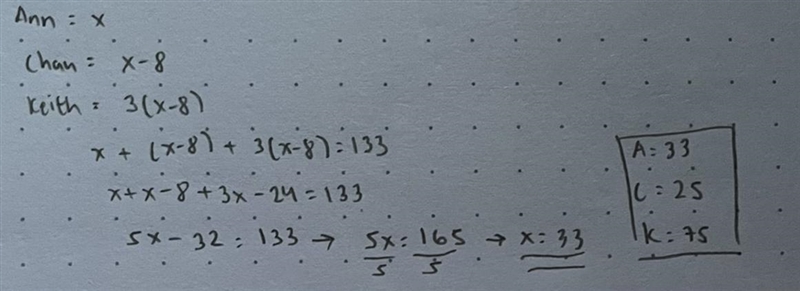 Ann = x
Chan = x-8
Keith = 3(x-8)
x + (x-8) + 3(x-8) = 133
x+x-8+3x-24=133
5x-32=133 → 5x/5 = 165/5 → x=33
A=33
C=25
K=75